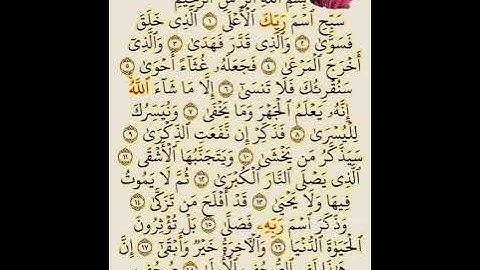 بِسْمِ ٱللَّهِ ٱلرَّحْمَٰنِ ٱلرَّحِيمِ
سَبِّحِ ٱسْمَ رَبِّكَ ٱلْأَعْلَى ۝١ ٱلَّذِى خَلَقَ
فَسَوَّىٰ ۝٢ وَٱلَّذِى قَدَّرَ فَهَدَىٰ ۝٣ وَٱلَّذِىٓ
أَخْرَجَ ٱلْمَرْعَىٰ ۝٤ فَجَعَلَهُۥ غُثَآءً أَحْوَىٰ ۝٥
سَنُقْرِئُكَ فَلَا تَنسَىٰٓ ۝٦ إِلَّا مَا شَآءَ ٱللَّهُ
إِنَّهُۥ يَعْلَمُ ٱلْجَهْرَ وَمَا يَخْفَىٰ ۝٧ وَنُيَسِّرُكَ
لِلْيُسْرَىٰ ۝٨ فَذَكِّرْ إِن نَّفَعَتِ ٱلذِّكْرَىٰ ۝٩
سَيَذَّكَّرُ مَن يَخْشَىٰ ۝١٠ وَيَتَجَنَّبُهَا ٱلْأَشْقَى ۝١١
ٱلَّذِى يَصْلَى ٱلنَّارَ ٱلْكُبْرَىٰ ۝١٢ ثُمَّ لَا يَمُوتُ
فِيهَا وَلَا يَحْيَىٰ ۝١٣ قَدْ أَفْلَحَ مَن تَزَكَّىٰ ۝١٤
وَذَكَرَ ٱسْمَ رَبِّهِۦ فَصَلَّىٰ ۝١٥ بَلْ تُؤْثِرُونَ
ٱلْحَيَوٰةَ ٱلدُّنْيَا ۝١٦ وَٱلْـَٔاخِرَةُ خَيْرٌ وَأَبْقَىٰٓ ۝١٧ إِنَّ
هَٰذَا لَفِى ٱلصُّحُفِ ٱلْأُولَىٰ ۝١٨ صُحُفِ